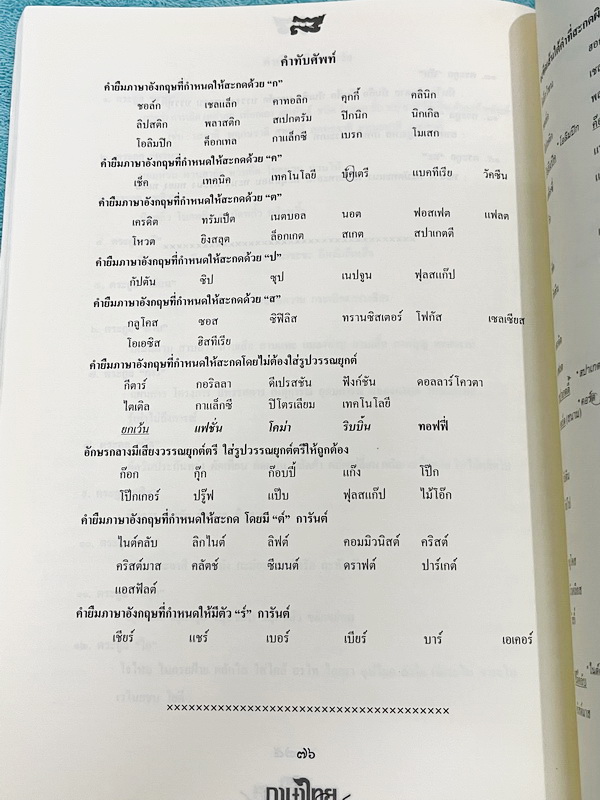 คำทับศัพท์
คำยืมภาษาอังกฤษที่กำหนดให้สะกดด้วย “ก”
ชอล์ก เชลแล็ก คาทอลิก คุกกี้ คลินิก
ลิปสติก พลาสติก สเปกตรัม ปิกนิก นิกเกิล
โอลิมปิก ค็อกเทล กาแล็กซี เบรก โมเสก
คำยืมภาษาอังกฤษที่กำหนดให้สะกดด้วย “ค”
เช็ค เทคนิค เทคโนโลยี แบคทีเรีย วัคซีน
คำยืมภาษาอังกฤษที่กำหนดให้สะกดด้วย “ต”
เครดิต ทรัมเป็ต เนตบอล นอต ฟอสเฟต แฟลต
โหวต ยิงสลุต ล็อกเกต สเกต สปาเกตตี
คำยืมภาษาอังกฤษที่กำหนดให้สะกดด้วย “ป”
กัปตัน ซิป ซุป เนปจูน ฟุลสแก๊ป
คำยืมภาษาอังกฤษที่กำหนดให้สะกดด้วย “ส”
กลูโคส ซอส ซิฟิลิส ทรานซิสเตอร์ โฟกัส เซลเซียส
โอเอซิส ฮิสทีเรีย
คำยืมภาษาอังกฤษที่กำหนดให้สะกดโดยไม่ต้องใส่รูปวรรณยุกต์
กีตาร์ กอริลลา ดีเปรสชัน ฟังก์ชัน ดอลลาร์ โควตา
ไตเติล กาแล็กซี ปิโตรเลียม เทคโนโลยี
ยกเว้น แฟชั่น โคม่า ริบบิ้น ทอฟฟี่
อักษรกลางมีเสียงวรรณยุกต์ตรี ใส่รูปวรรณยุกต์ตรีให้ถูกต้อง
ก๊อก กุ๊ก ก๊อบปี้ แก๊ง โป๊ก
โป๊กเกอร์ ปรู๊ฟ แป๊บ ฟุลสแก๊ป ไม้โอ๊ก
คำยืมภาษาอังกฤษที่กำหนดให้สะกด โดยมี “ต์” การันต์
ไนต์คลับ ลิกไนต์ ลิฟต์ คอมมิวนิสต์ คริสต์
คริสต์มาส คลัตช์ ซีเมนต์ ดราฟต์ ปาร์เกต์
แอสฟัลต์
คำยืมภาษาอังกฤษที่กำหนดให้มีตัว “ร์” การันต์
เชียร์ แชร์ เบอร์ เบียร์ บาร์ เอเคอร์
xxxxxxxxxxxxxxxxxxxxxxxxxxxxxxxxxxxxxxxx
๗๖
ภาษาไทย